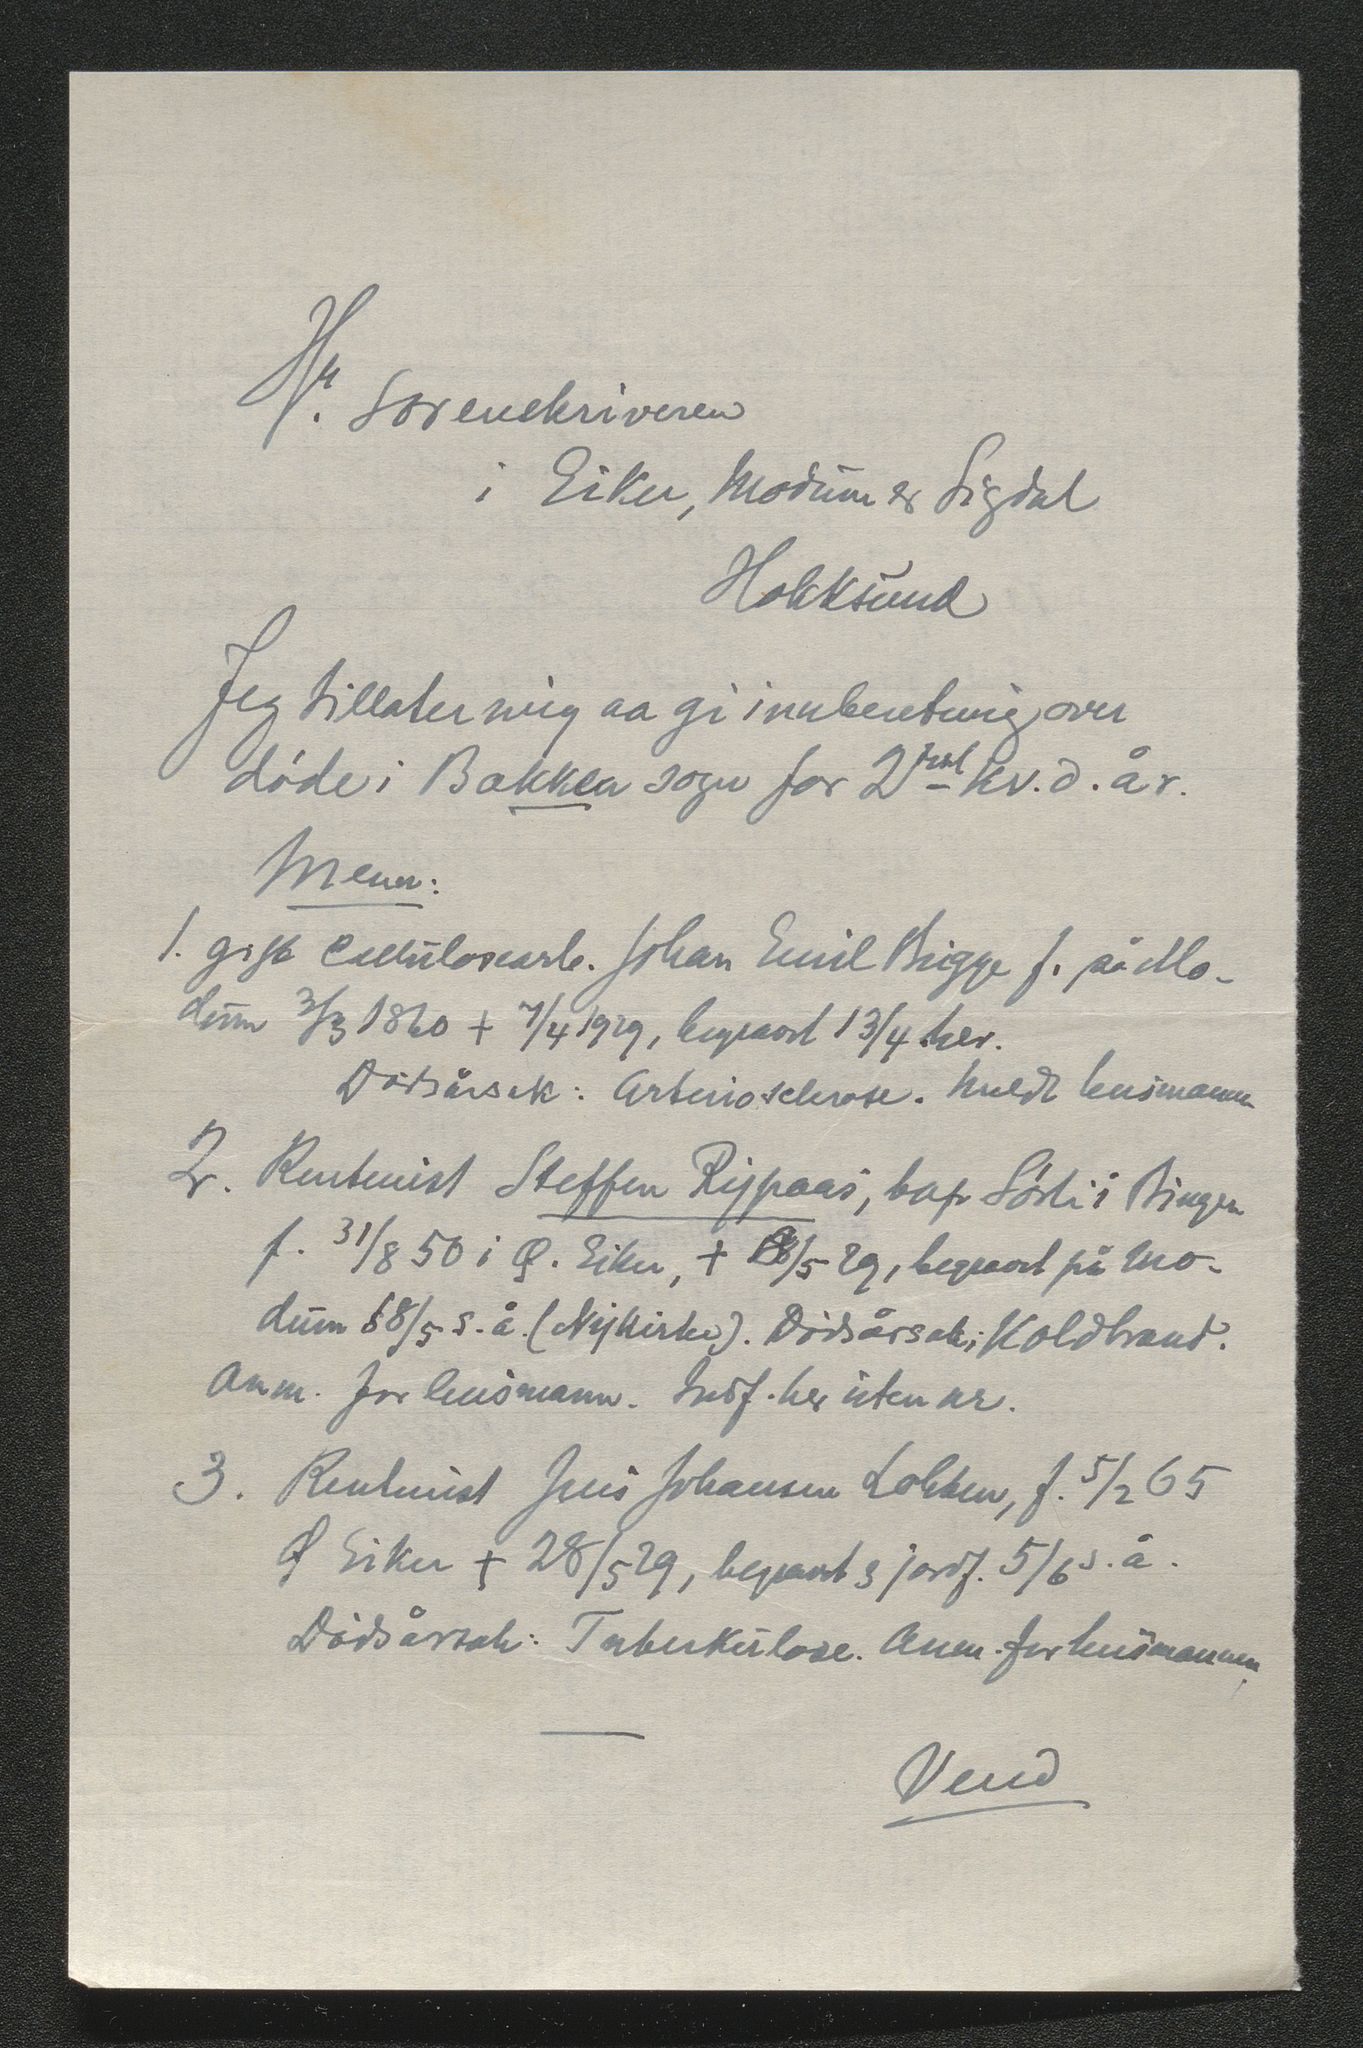 Hr. Sorenskriveren
i Eiker, Modum & Sigdal
Hokksund
Jeg tillater mig aa gi innberetning over
døde i Bakken sogn for 2net kv. d. år.
Menn:
1. gift Cellulosearb. Johan Emil Brigge f. på Mo-
dum 3/3 1860 + 7/4 1929, begravet 13/4 her.
Dødsårsak: Arteriosclerose. Meldt lensmann
2. Rentenist Steffen Rypaas, bop Sörli i Bingen
f. 31/8 50 i Ø. Eiker, + /5 29, begravet på Mo-
dum 18/5 s. å. (Nykirke). Dødsårsak: Koldbrand.
Anm. for lensmann. Indf. her uten nr.
3. Rentenist Jens Johansen Lokken, f. 5/2 65
Ø Eiker + 28/5 29, begravet & jordf. 5/6 s. å.
Dødsårsak: Tuberkulose. Anm. for lensmannen.
Vend